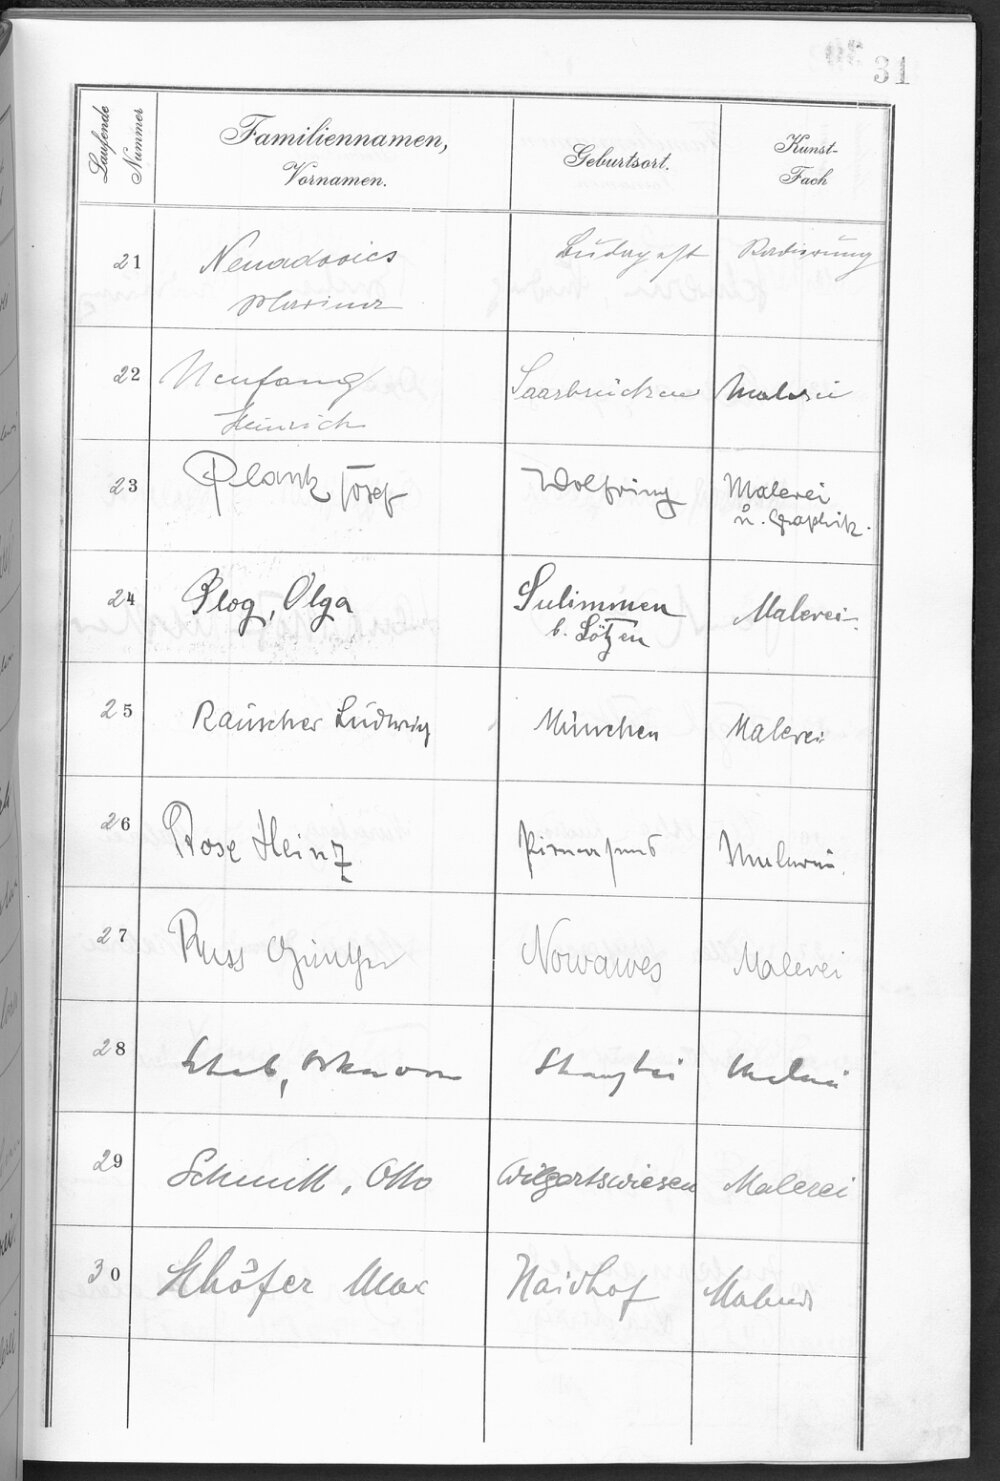 31
Laufende Nummer
Familiennamen, Vornamen.
Geburtsort.
Kunst-Fach
21 Nenadovics Budapest Radierung
22 Neufang Heinrich Saarbrücken Malerei
23 Plank Josef Wolfring Malerei
u. Graphik.
24 Plog, Olga Sulimmen Malerei
b. Lötzen
25 Rauscher Ludwig München Malerei
26 Rose Heinz Pirmasens Malerei.
27 Russ Günther Nowawes Malerei
28 Shanghai Malerei
29 Schmitt, Otto Wilgartswiesen Malerei
30 Schöfer Max Haidhof Malerei